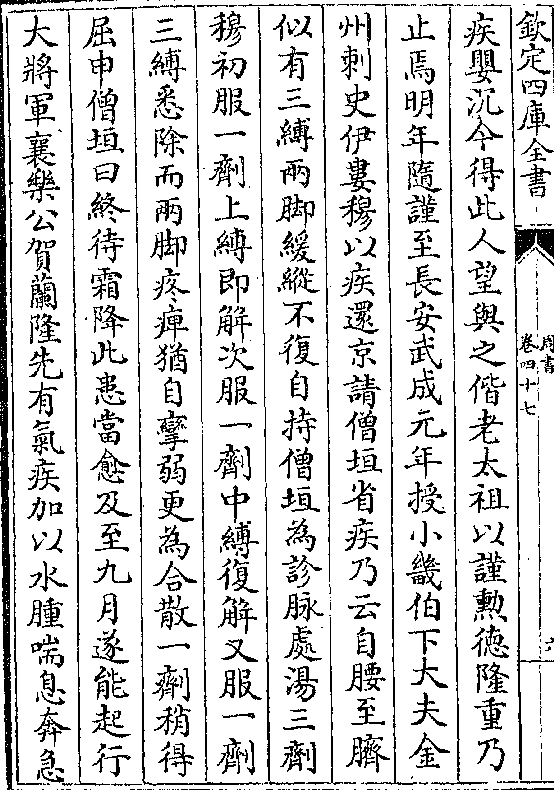 欽定四庫全書
周書
卷四十七
疾嬰沉今得此人望與之偕老太祖以謹勲德隆重乃
止焉明年隨謹至長安武成元年授小畿伯下大夫金
州刺史伊婁穆以疾還京請僧垣省疾乃云自腰至臍
似有三縛兩脚緩縱不復自持僧垣為診脉處湯三劑
穆初服一劑上縛即解次服一劑中縛復解又服一劑
三縛悉除而兩脚疼痺猶自攣弱更為合散一劑稍得
屈申僧垣曰終待霜降此患當愈及至九月遂能起行
大將軍襄樂公賀蘭隆先有氣疾加以水腫喘息奔急